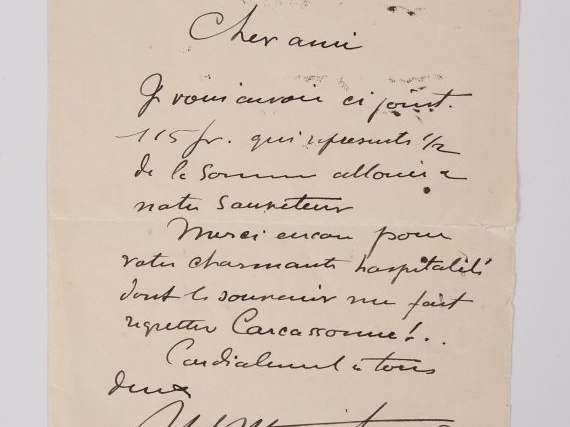 Cher ami
Je vous envoie ci joint.
115 fr. qui représente 1/2
de la somme allouée à
notre sauveteur
Merci encore pour
votre charmante hospitalité
dont le souvenir me fait
regretter Carcassonne!..
Cordialement à tous
deux